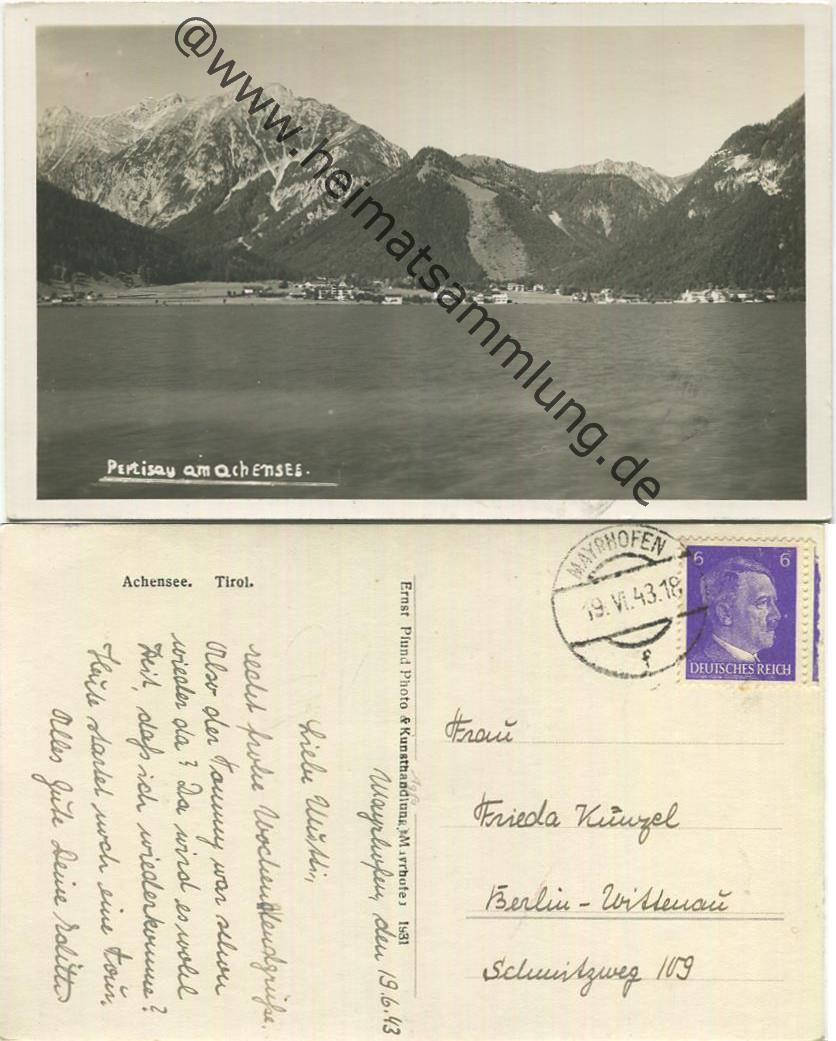 @www.heimatsammlung.de
Pertisau am Achensee.
Achensee. Tirol.
Ernst Pfund Photo & Kunsthandlung, Mayrhofen 1931
MAYRHOFEN
19.VI.43.18
f
6 6
DEUTSCHES REICH
Mayrhofen, den 19.6.43
Liebe Mutti,
recht frohe Wochenendgrüße.
Also der Tommy war schon
wieder da? Da wird es wohl
Zeit, daß ich wiederkomme?
Heute startet noch eine Tour.
Alles Gute Deine Edith
Frau
Frieda Künzel
Berlin-Wittenau
Schmitzweg 109